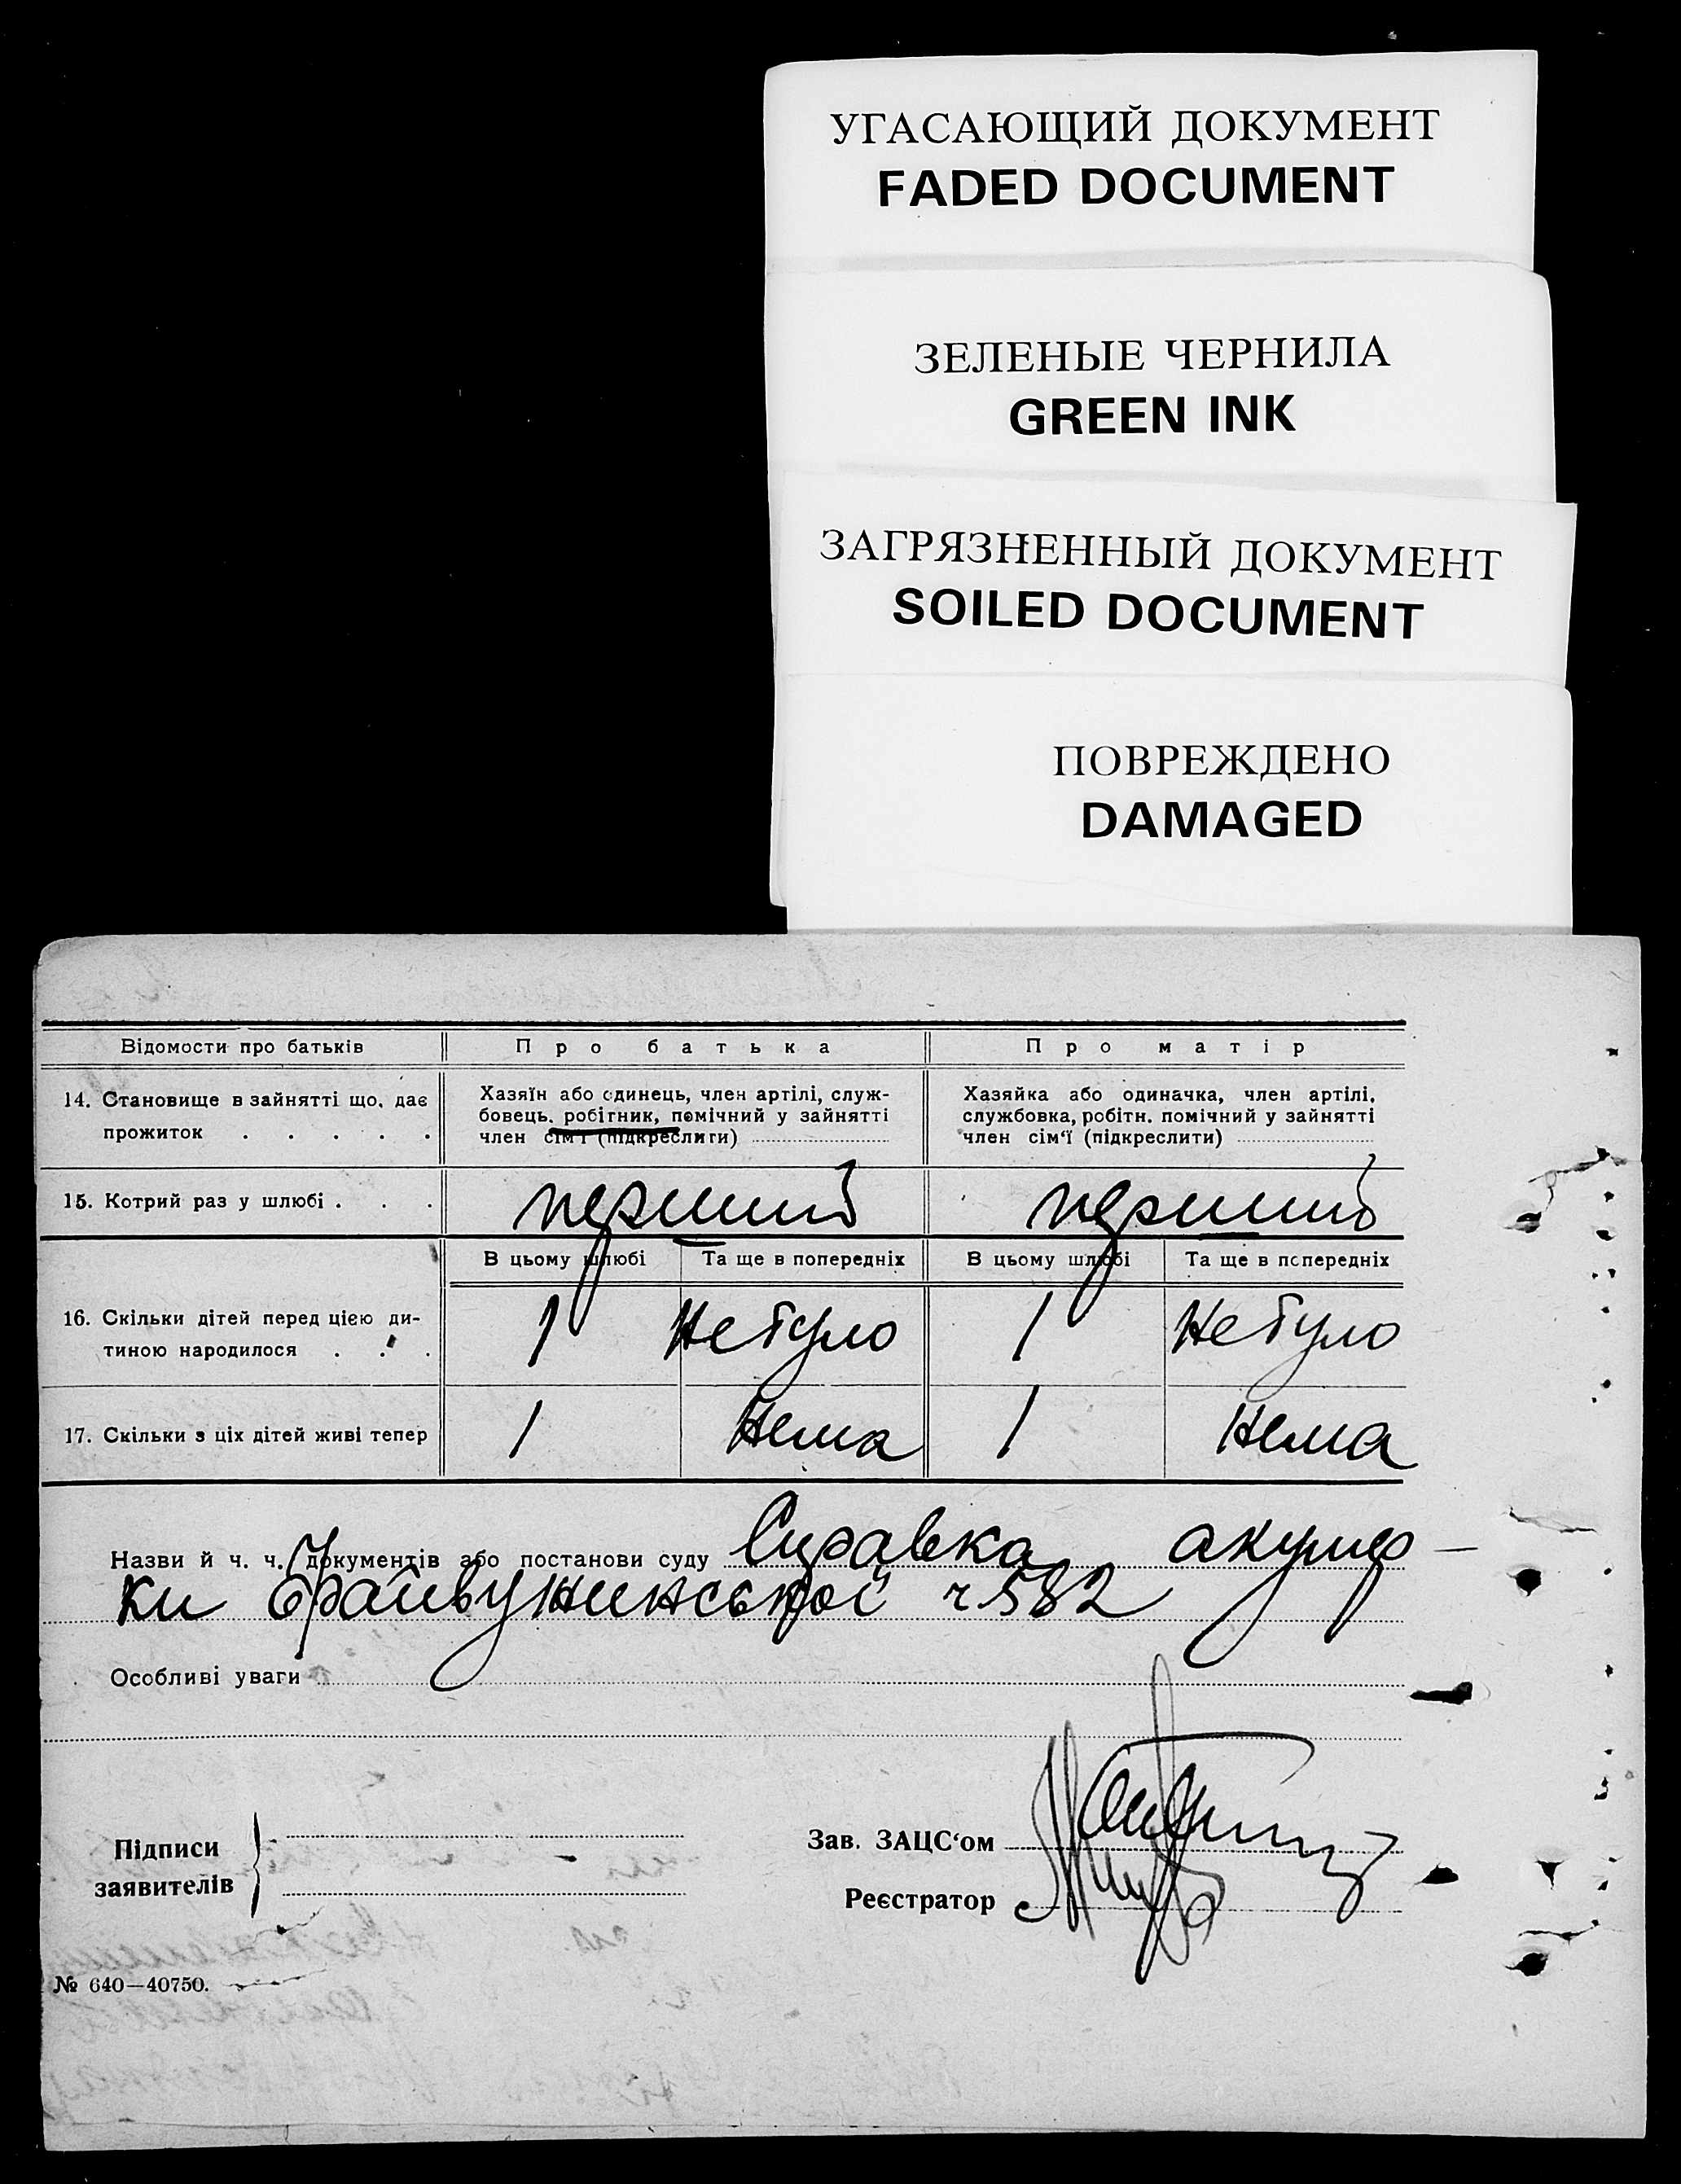 УГАСАЮЩИЙ ДОКУМЕНТ
FADED DOCUMENT
ЗЕЛЕНЫЕ ЧЕРНИЛА
GREEN INK
ЗАГРЯЗНЕННЫЙ ДОКУМЕНТ
SOILED DOCUMENT
ПОВРЕЖДЕНО
DAMAGED
Відомости про батьків Про батька Про матір
14. Становище в зайнятті що, дає
прожиток . . . . .
Хазяїн або одинець, член артілі, служ-
бовець, робітник, помічний у зайнятті
член сім'ї (підкреслити)
Хазяйка або одиначка, член артілі,
службовка, робітн. помічний у зайнятті
член сім'ї (підкреслити)
15. Котрий раз у шлюбі . . . перший перший
В цьому шлюбі Та ще в попередніх В цьому шлюбі Та ще в попередніх
16. Скільки дітей перед цією ди-
тиною народилося . . . 1 Не було 1 Не було
17. Скільки з ціх дітей живі тепер 1 Нема 1 Нема
Назви й ч. ч. документів або постанови суду Справка акушер
ки ч 582
Особливі уваги
Підписи
заявителів
Зав. ЗАЦС'ом
Реєстратор
№ 640—40750.